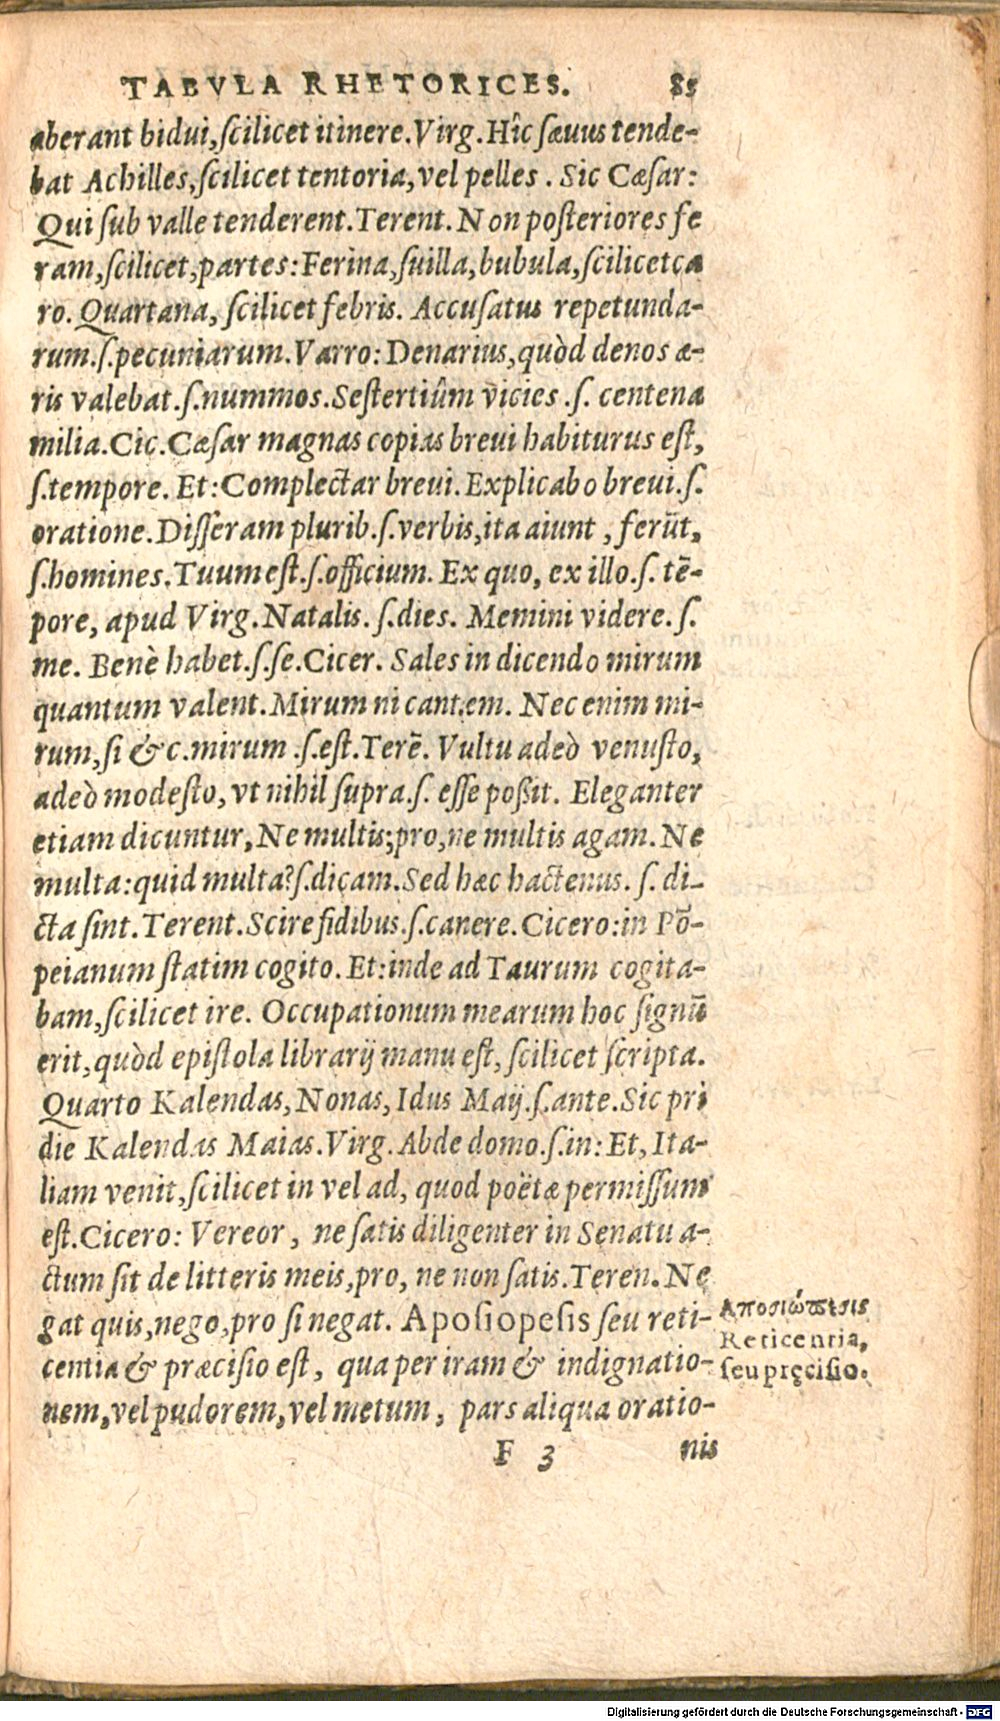 TABVLA RHETORICES. 85
aberant bidui,ſcilicet itinere.Virg.Hîc ſæuus tende-
bat Achilles,ſcilicet tentoria,vel pelles . Sic Cæſar:
Qui ſub valle tenderent.Terent.Non poſteriores fe
ram,ſcilicet,partes:Ferina,ſuilla,bubula,ſcilicet ca
ro. Quartana, ſcilicet febris. Accuſatus repetunda-
rum.ſ.pecuniarum.Varro:Denarius,quòd denos æ-
ris valebat.ſ.nummos.Seſtertiûm vicies .ſ. centena
milia.Cic.Cæſar magnas copias breui habiturus eſt,
ſ.tempore. Et:Complectar breui.Explicabo breui.ſ.
oratione.Diſſeram plurib.ſ.verbis,ita aiunt , ferūt,
ſ.homines.Tuum eſt.ſ.officium. Ex quo, ex illo.ſ. tē-
pore, apud Virg.Natalis. ſ.dies. Memini videre. ſ.
me. Benè habet.ſ.ſe.Cicer. Sales in dicendo mirum
quantum valent.Mirum ni cantem. Nec enim mi-
rum,ſi &c.mirum .ſ.eſt.Terē. Vultu adeò venuſto,
adeò modeſto, vt nihil ſupra.ſ. eſſe poßit. Eleganter
etiam dicuntur,Ne multis;pro,ne multis agam.Ne
multa:quid multa?ſ.dicam.Sed hæc hactenus. ſ. di-
cta ſint.Terent.Scire fidibus.ſ.canere.Cicero:in Pō-
peianum ſtatim cogito. Et:inde ad Taurum cogita-
bam,ſcilicet ire. Occupationum mearum hoc ſignū
erit,quòd epiſtola librarij manu eſt, ſcilicet ſcripta.
Quarto Kalendas,Nonas,Idus Maij.ſ.ante.Sic pri
die Kalendas Maias.Virg.Abde domo.ſ.in:Et,Ita-
liam venit,ſcilicet in vel ad, quod poëtæ permiſſum
eſt.Cicero: Vereor , ne ſatis diligenter in Senatu a-
ctum ſit de litteris meis,pro, ne non ſatis.Teren.Ne
gat quis,nego,pro ſi negat. Apoſiopeſis ſeu reti-
centia & præciſio eſt, qua per iram & indignatio-
nem,vel pudorem,vel metum, pars aliqua oratio-
Αποσιώπεσις
Reticentia,
ſeu pręciſio.
F 3 nis
Digitalisierung gefördert durch die Deutsche Forschungsgemeinschaft - DFG